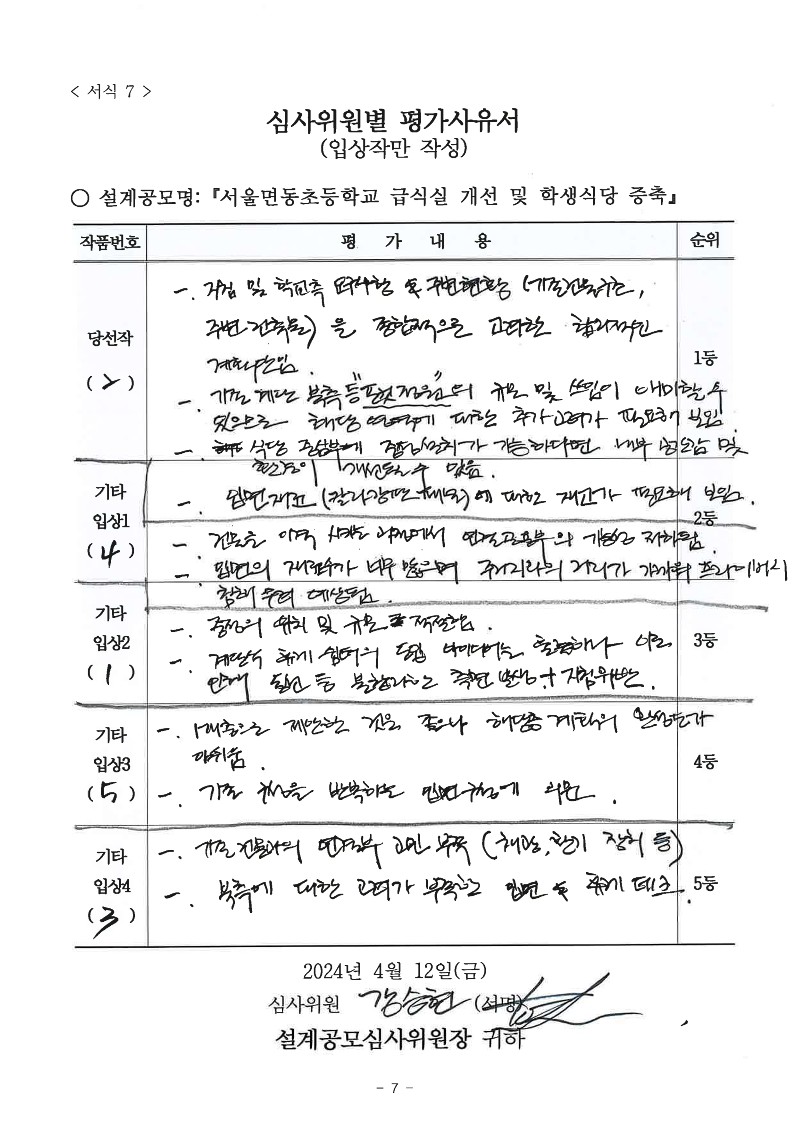 < 서식 7 >
심사위원별 평가사유서
(입상작만 작성)
○ 설계공모명:『서울면동초등학교 급식실 개선 및 학생식당 증축』
작품번호 평 가 내 용 순위
당선작
(2)
-. 지침 및 학교측 요구사항 및 주변현황 (기존건물규모,
주변 건축물)을 종합적으로 고려한 합리적인
계획안임.
-. 기존 계단 북측 등 의 규모 및 쓰임이 애매할 수
있으므로 해당 영역에 대한 추가 고려가 필요해 보임
-. 식당 중심부에 천창설치가 가능하다면 내부 공간감 및
환경이 개선될 수 있음.
-. 입면재료 (칼라강판)에 대한 재고가 필요해 보임.
1등
기타
입상1
(4)
-. 건물을 이격 시키는 과정에서 연결 부의 기능성 저하됨.
-. 입면의 가 너무 많으며 과의 거리가 가까워 프라이버시
침해 우려 예상됨.
2등
기타
입상2
(1)
-. 중정의 위치 및 규모 적절함.
-. 계단식 휴게 쉼터의 도입 아이디어는 훌륭하나 이로
인해 동선 등 불합리한 측면 발생 + 지침위반.
3등
기타
입상3
(5)
-. 1개층으로 제안한 것은 좋으나 해당층 계획의 완성도가
아쉬움.
-. 기존 을 반복하는 입면 에 의문.
4등
기타
입상4
(3)
-. 기존 건물과의 연결부 고민 부족 (채광, 환기 장치 등)
-. 북측에 대한 고려가 부족한 입면 및 휴게 데크.
5등
2024년 4월 12일(금)
심사위원 강승현 (서명)
설계공모심사위원장 귀하
- 7 -